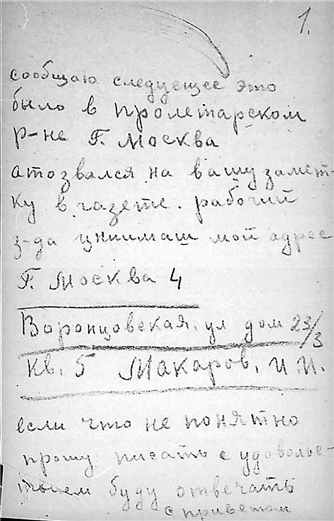 1.
сообщаю следующее это
было в пролетарском
р-не Г. Москва
атозвался на вашу замет-
ку в газете. рабочий
з-да цниимаш мой адрес
Г. Москва 4
Воронцовская. ул дом 23/3
кв. 5 Макаров. И. И.
если что не понятно
прошу писать с удоволь-
ствием буду отвечать
с приветом